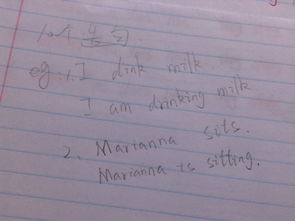 eg: 1. I dink milk
I am drinking milk
2. Marianna sits.
Marianna is sitting.